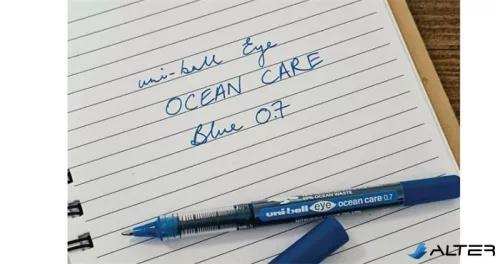 uni-ball Eye
OCEAN CARE
Blue 0.7
OCEAN WASTE
uni-ball eye ocean care 0.7
ALTER